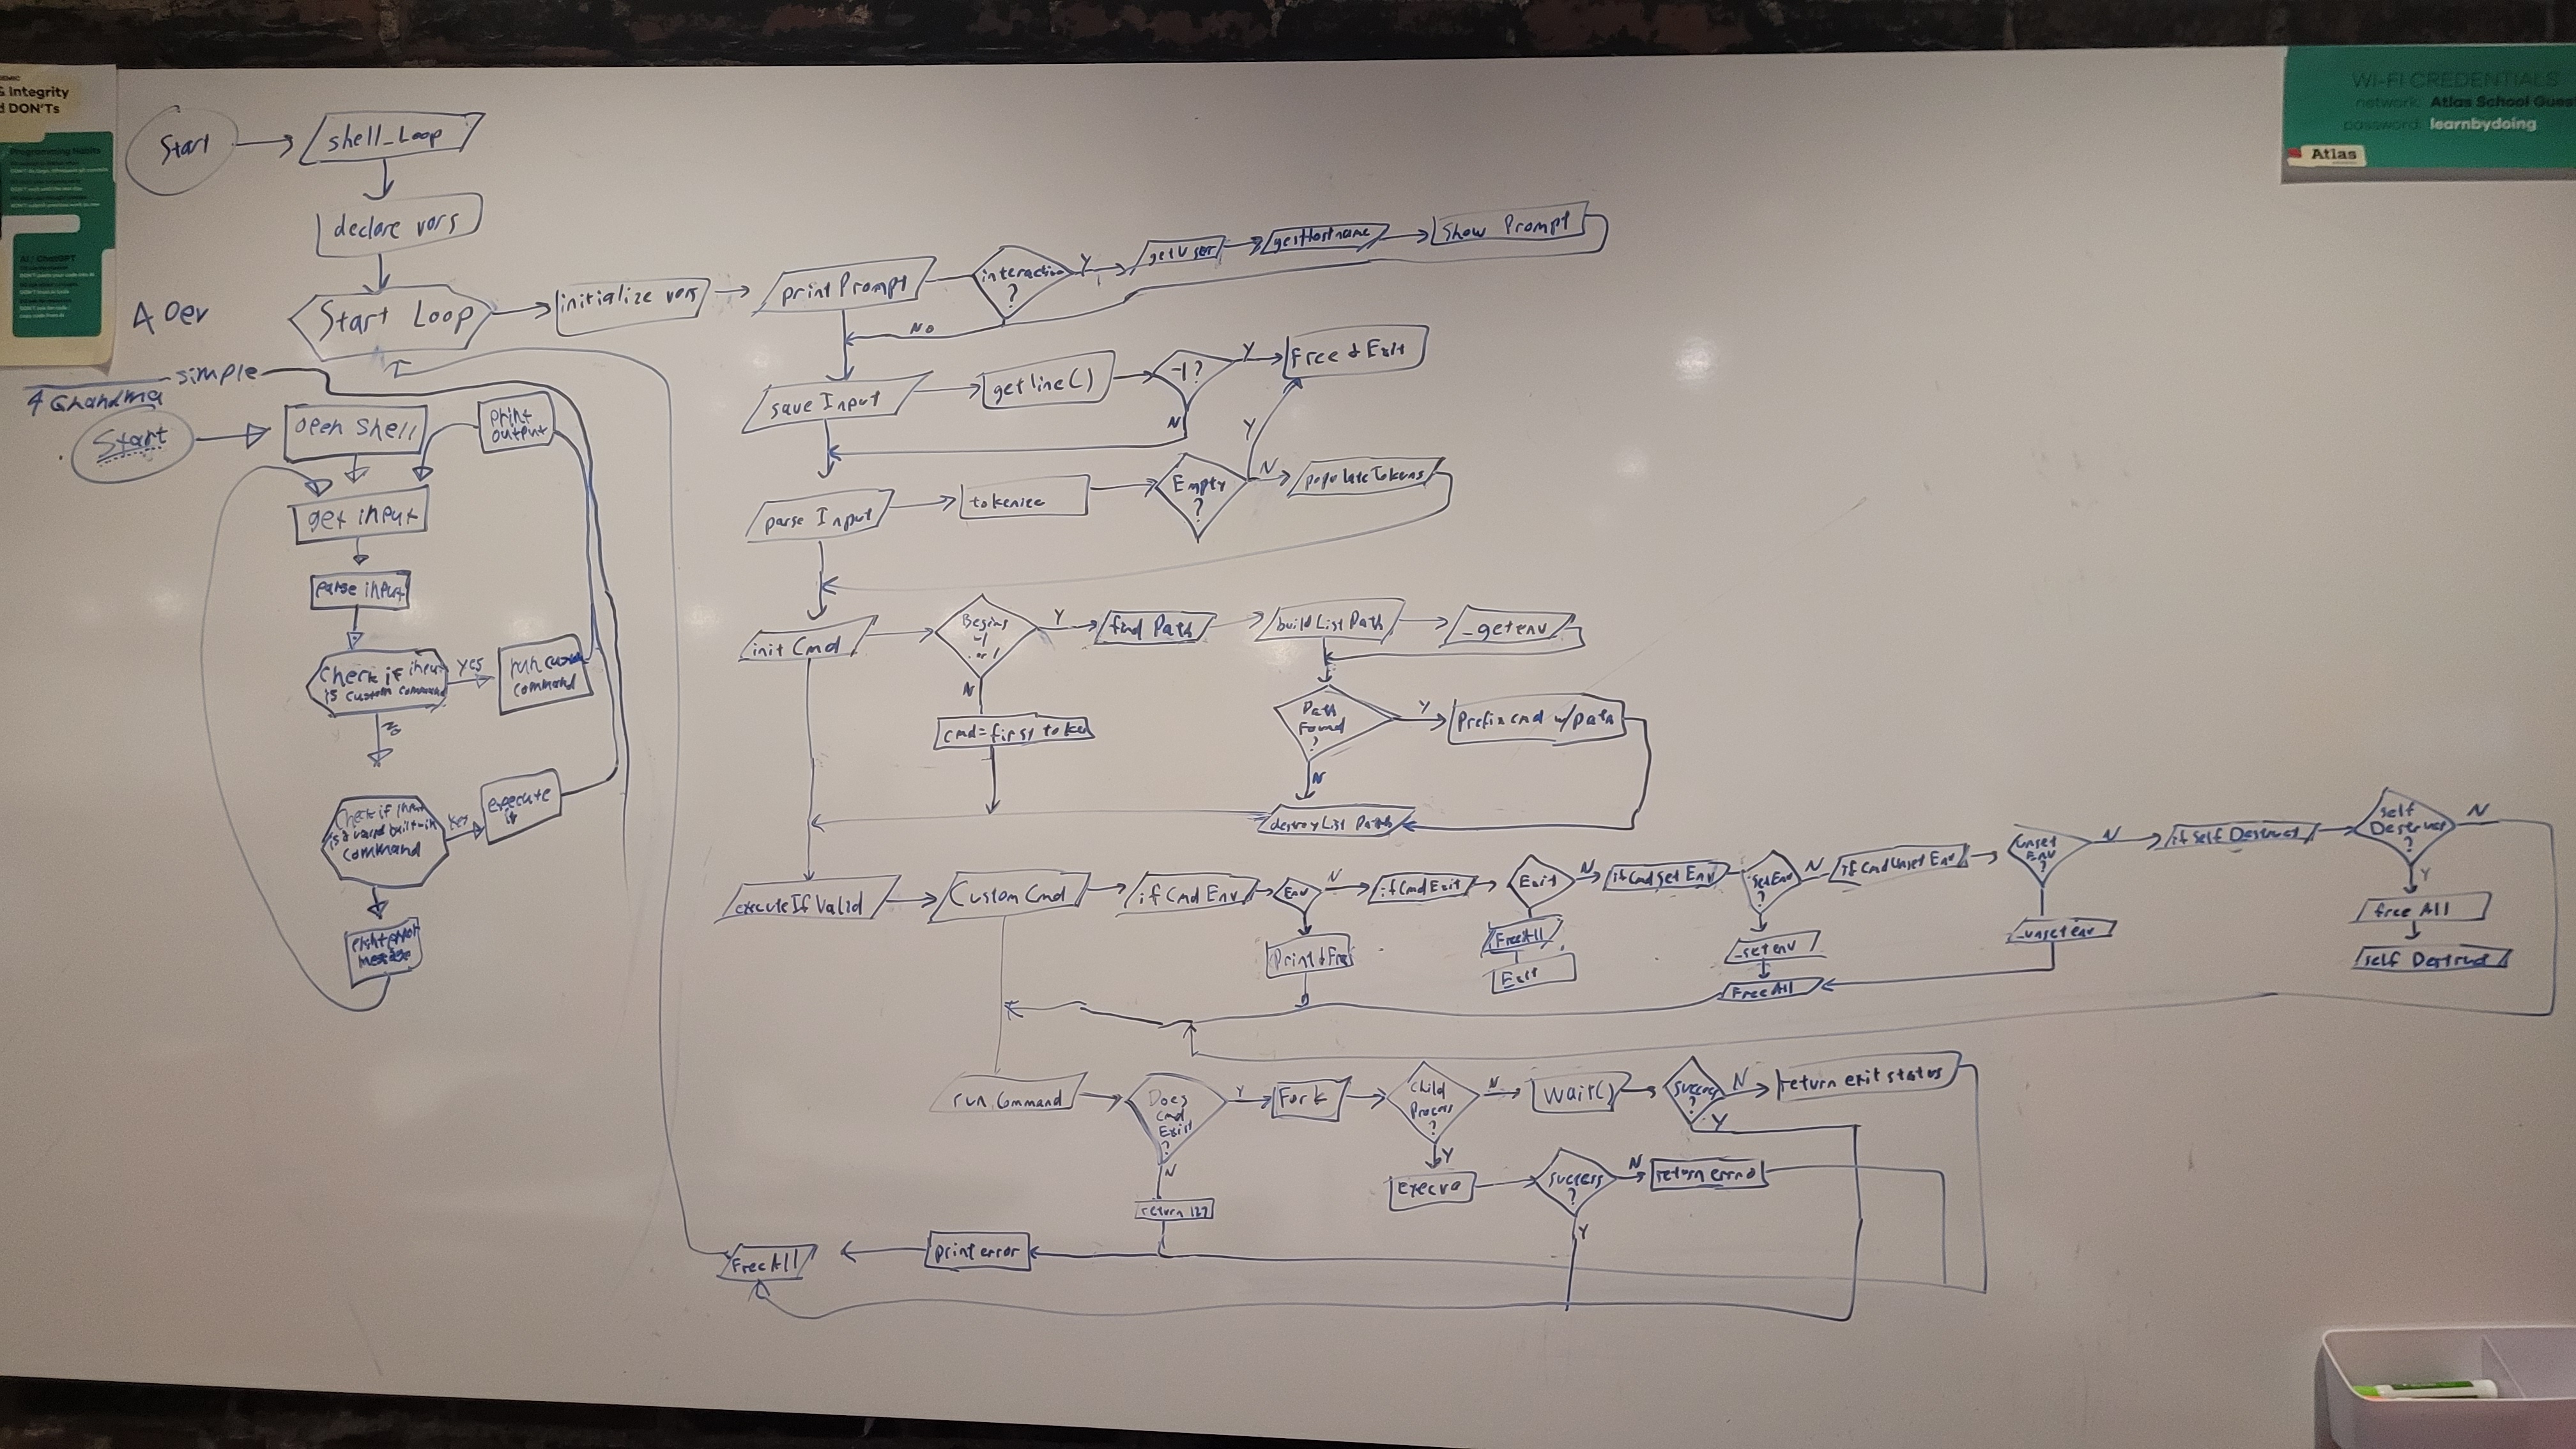 & Integrity
d DON'Ts
Programming Habits
AI / ChatGPT
WI-FI CREDENTIALS
network: Atlas School Gues
password: learnbydoing
Atlas
Start
shell_Loop
declare vars
4 Dev
Start Loop
initialize vars
print Prompt
interactive
?
Y
getUser
getHostname
Show Prompt
No
save Input
getline()
-1?
Y
Free & Exit
N
parse Input
tokenize
Empty
?
Y
N
populateTokens
init Cmd
Begins
Y
find Path
buildListPath
_getenv
N
cmd=first token
Path
Found
?
Y
Prefix cmd w/path
N
destroyList Path
executeIfValid
Custom Cmd
if Cmd Env
Env
N
if Cmd Exit
Exit
N
if Cmd Set Env
SetEnv
?
N
if Cmd Unset Env
Unset
Env
?
N
if Self Destruct
Self
Destruct
?
N
Print & Free
FreeAll
Exit
_setenv
FreeAll
_unsetenv
Y
free All
self Destruct
run Command
Does
Cmd
Exist
?
Y
Fork
Child
Process
?
N
wait()
success
?
N
return exit status
Y
N
return 127
Y
execve
success
?
N
return errno
Y
print error
FreeAll
4 Grandma simple
Start
open shell
print
output
get input
parse input
Check if input
is custom command
yes
run custom
command
no
Check if input
is a valid built-in
command
Yes
execute
it
print error
message